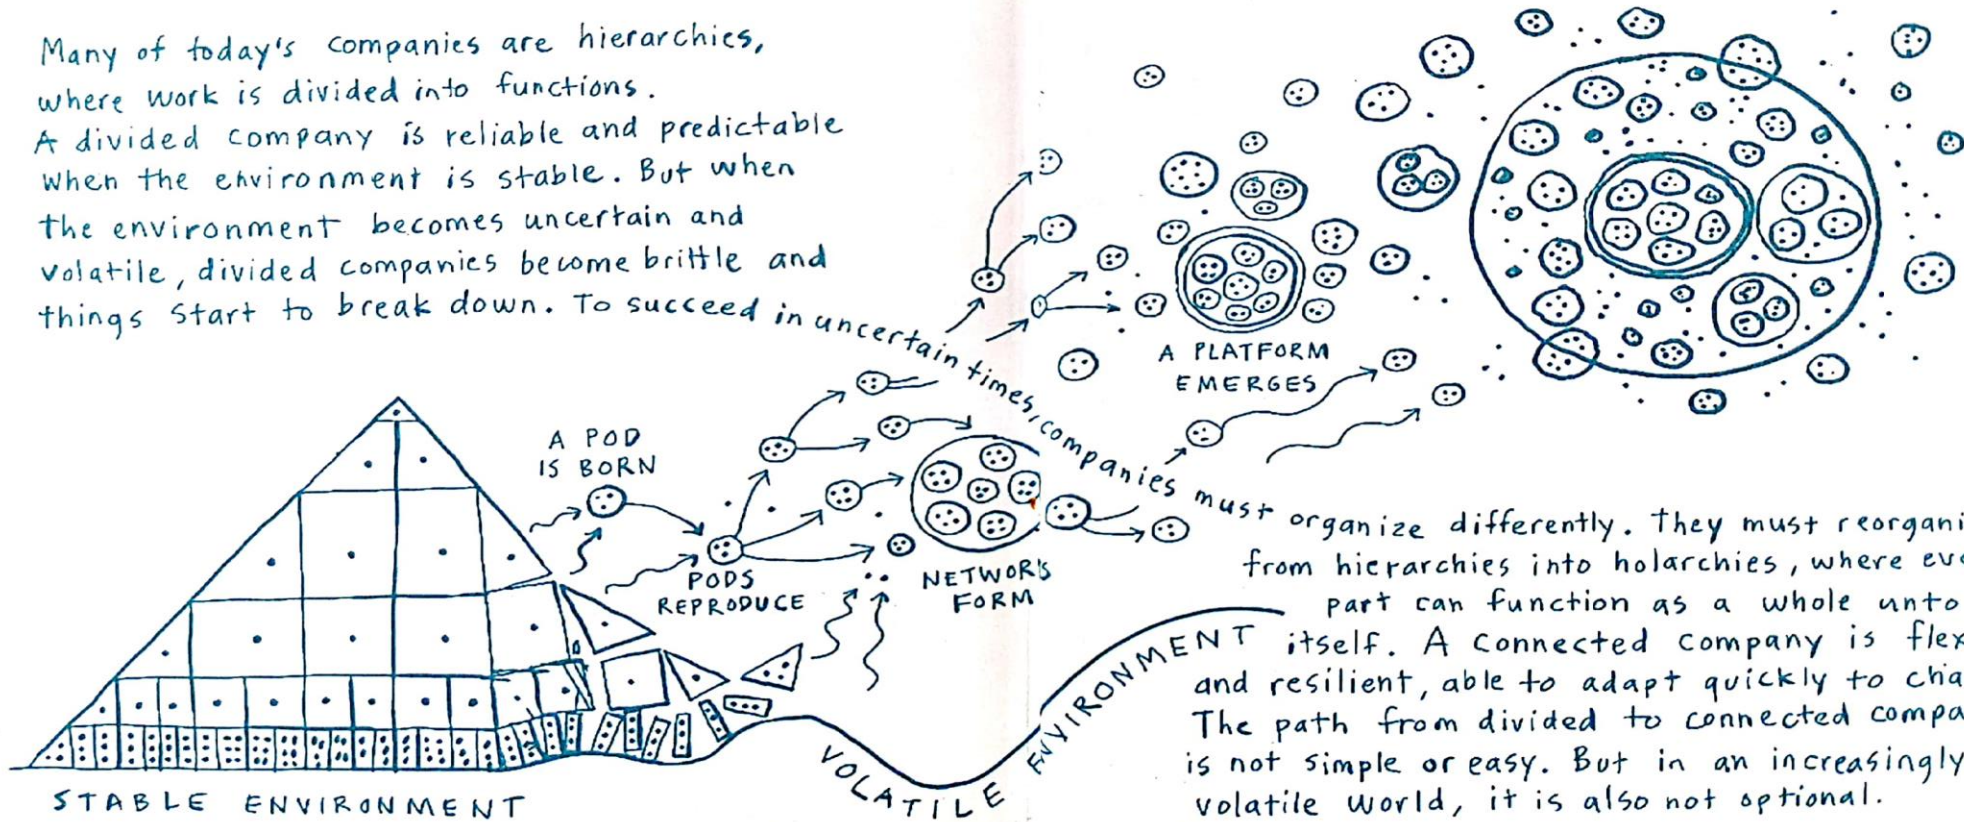 Many of today's companies are hierarchies,
where work is divided into functions.
A divided company is reliable and predictable
when the environment is stable. But when
the environment becomes uncertain and
volatile, divided companies become brittle and
things start to break down. To succeed in uncertain times, companies must organize differently. They must reorgani
from hierarchies into holarchies, where eve
part can function as a whole unto
itself. A connected company is flex
and resilient, able to adapt quickly to cha
The path from divided to connected compa
is not simple or easy. But in an increasingly
volatile world, it is also not optional.
A POD
IS BORN
PODS
REPRODUCE
NETWORKS
FORM
A PLATFORM
EMERGES
STABLE ENVIRONMENT
VOLATILE ENVIRONMENT